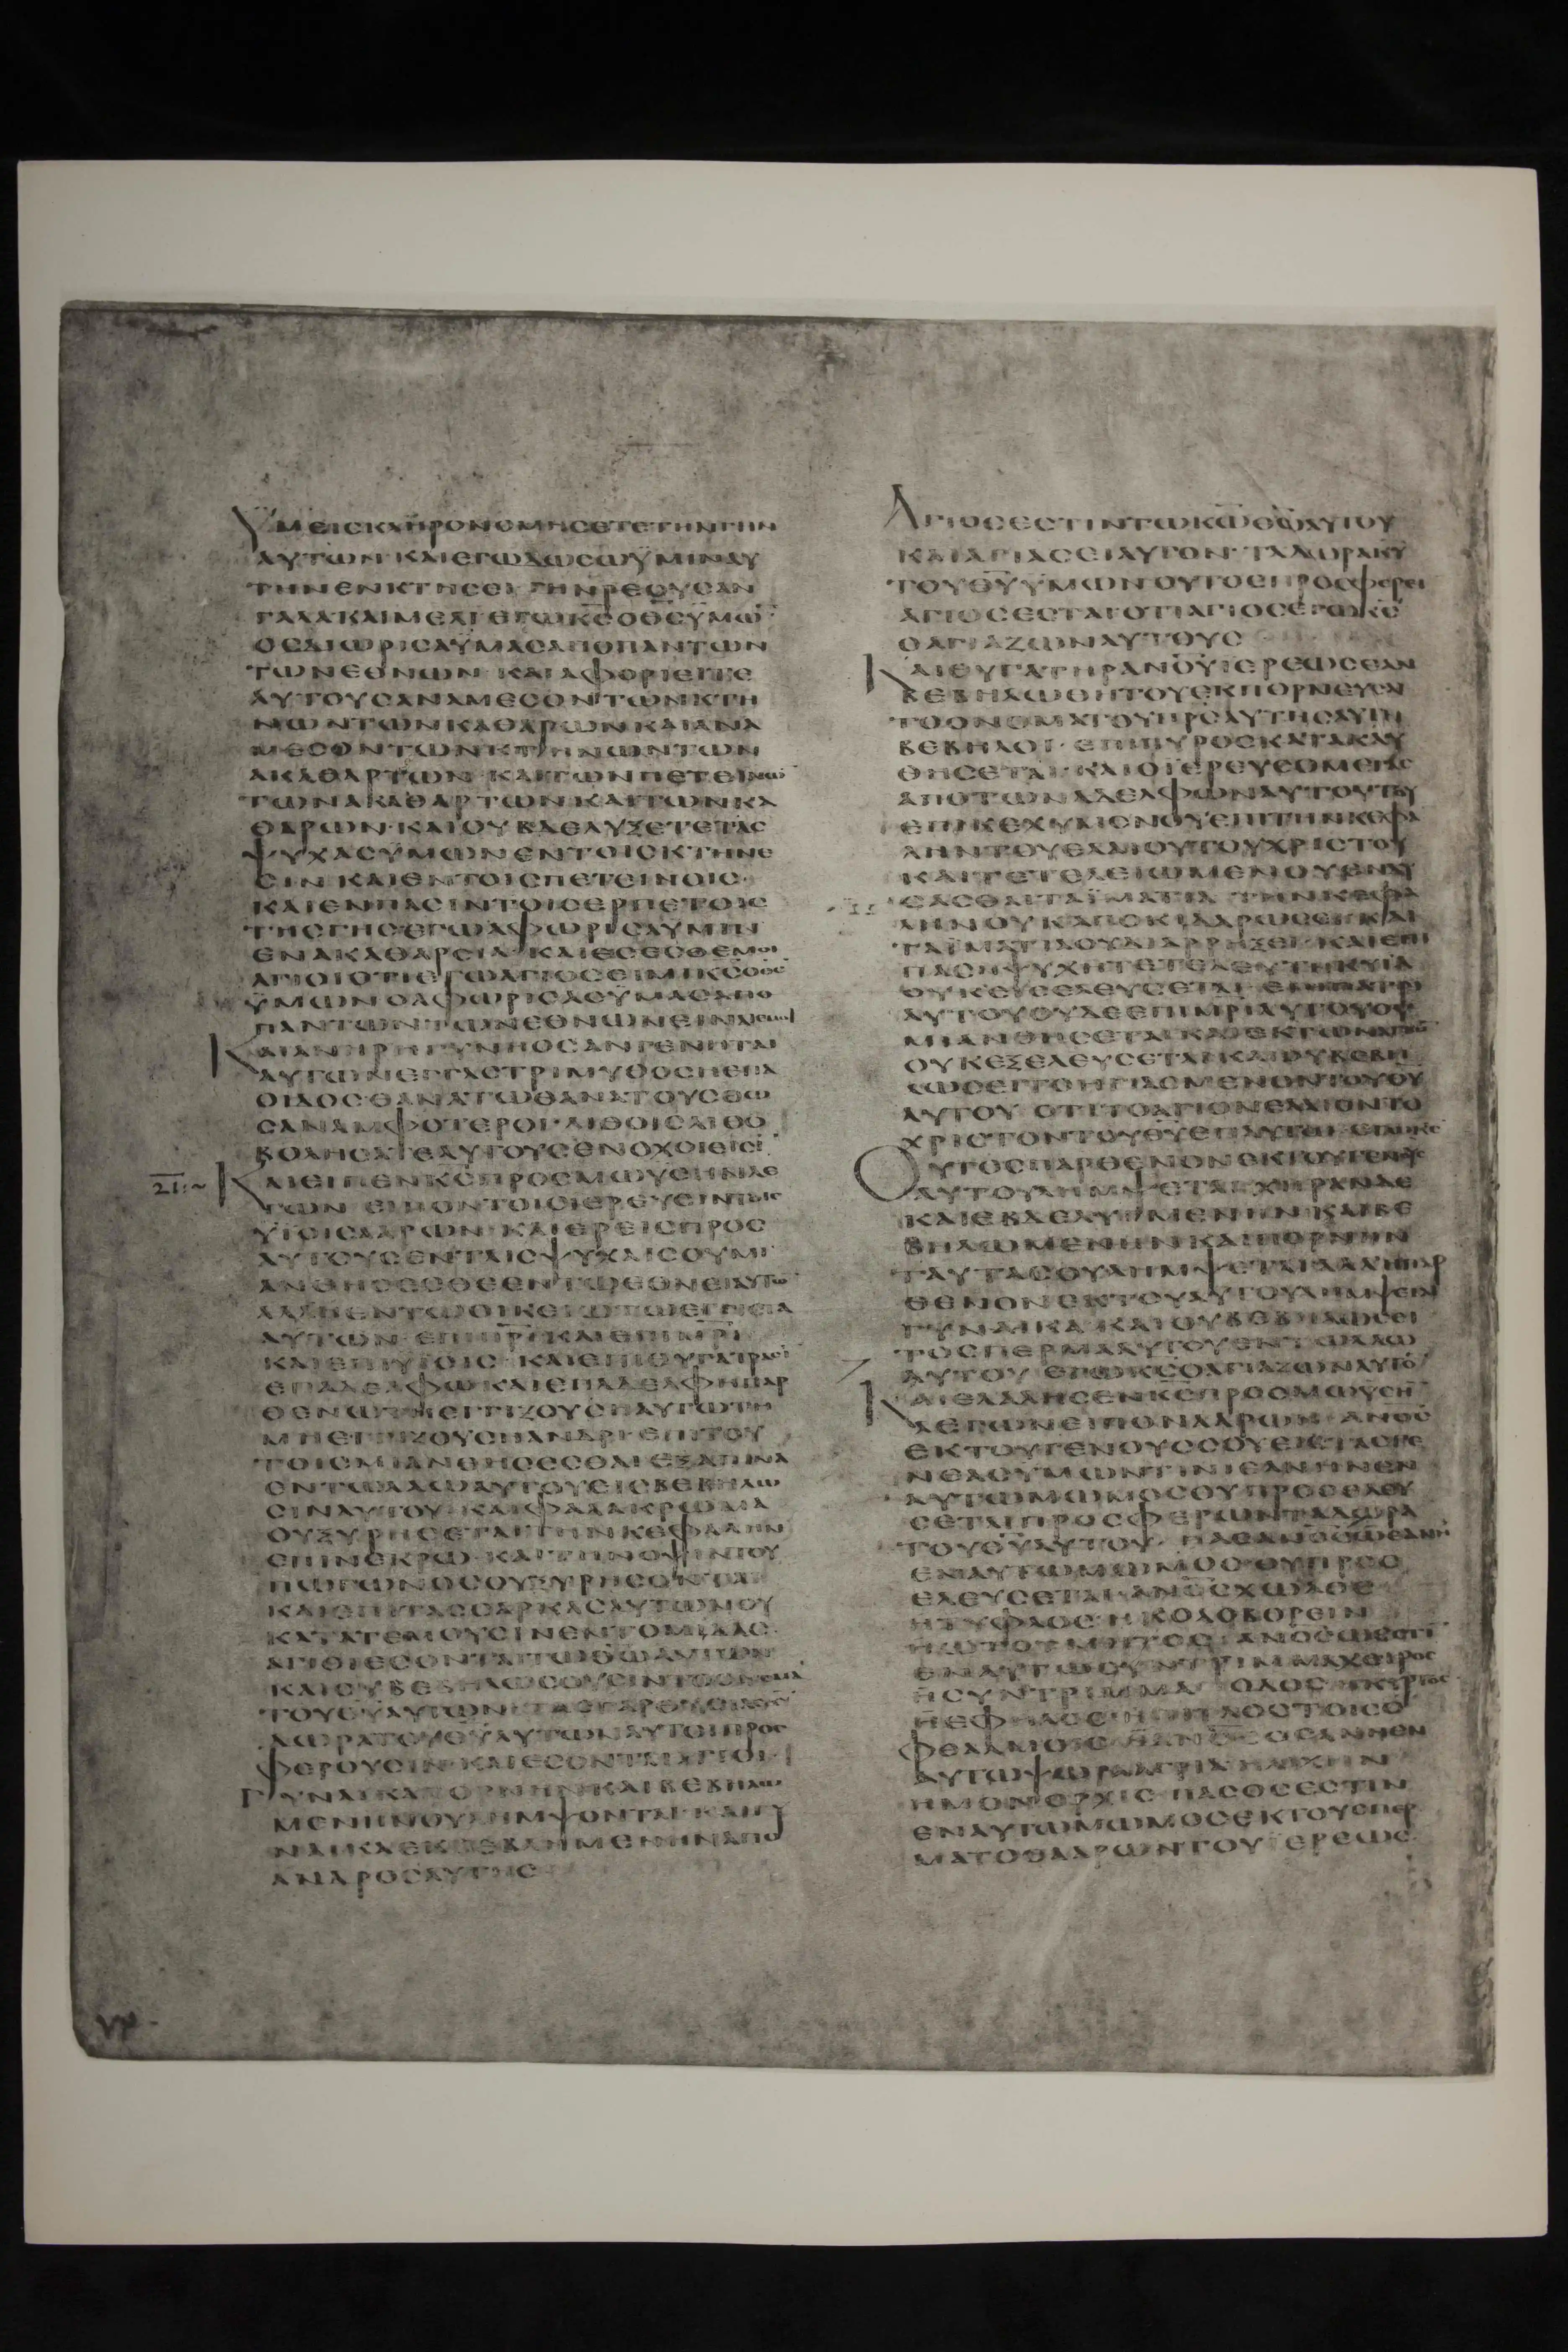 ΥΜΕΙΣΚΛΗΡΟΝΟΜΗΣΕΤΕΤΗΝΓΗΝ
ΑΥΤΩΝ·ΚΑΙΕΓΩΔΩΣΩΫΜΙΝΑΥ
ΤΗΝΕΝΚΤΗΣΕΙ ΓΗΝΡΕΟΥΣΑΝ
ΓΑΛΑΚΑΙΜΕΛΙ ΕΓΩΚ̅Σ̅ΟΘ̅Σ̅ΫΜΩ̅
ΟΣΔΙΩΡΙΣΑΫΜΑΣΑΠΟΠΑΝΤΩΝ
ΤΩΝΕΘΝΩΝ·ΚΑΙΑΦΟΡΙΕΙΤΕ
ΑΥΤΟΥΣΑΝΑΜΕΣΟΝΤΩΝΚΤΗ
ΝΩΝΤΩΝΚΑΘΑΡΩΝΚΑΙΑΝΑ
ΜΕΣΟΝΤΩΝΚΤΗΝΩΝΤΩΝ
ΑΚΑΘΑΡΤΩΝ·ΚΑΙΤΩΝΠΕΤΕΙΝΩ̅
ΤΩΝΑΚΑΘΑΡΤΩΝ·ΚΑΙΤΩΝΚΑ
ΘΑΡΩΝ·ΚΑΙΟΥΒΔΕΛΥΞΕΤΕΤΑΣ
ΨΥΧΑΣΫΜΩΝΕΝΤΟΙΣΚΤΗΝΕ
ΣΙΝ·ΚΑΙΕΝΤΟΙΣΠΕΤΕΙΝΟΙΣ·
ΚΑΙΕΝΠΑΣΙΝΤΟΙΣΕΡΠΕΤΟΙΣ
ΤΗΣΓΗΣ·ΕΓΩΑΦΩΡΙΣΑΫΜΙΝ
ΕΝΑΚΑΘΑΡΣΙΑ·ΚΑΙΕΣΕΣΘΕΜΟΙ
ΑΓΙΟΙΟΤΙΕΓΩΑΓΙΟΣΕΙΜΙΚ̅Σ̅ΟΘ̅Σ̅
ΫΜΩΝΟΑΦΩΡΙΣΑΣΫΜΑΣΑΠΟ
ΠΑΝΤΩΝΤΩΝΕΘΝΩΝΕΙΝΑΙΕΜΟΙ
ΚΑΙΑΝΗΡΗΓΥΝΗΟΣΑΝΓΕΝΗΤΑΙ
ΑΥΤΩΝΕΓΓΑΣΤΡΙΜΥΘΟΣΗΕΠΑ
ΟΙΔΟΣ·ΘΑΝΑΤΩΘΑΝΑΤΟΥΣΘΩ
ΣΑΝΑΜΦΟΤΕΡΟΙ·ΛΙΘΟΙΣΛΙΘΟ
ΒΟΛΗΣΑΤΕΑΥΤΟΥΣΕΝΟΧΟΙΕΙΣΙ
ΚΑΙΕΙΠΕΝΚ̅Σ̅ΠΡΟΣΜΩΫΣΗΝΛΕ
ΓΩΝ ΕΙΠΟΝΤΟΙΣΙΕΡΕΥΣΙΝΤΟΙΣ
ΫΙΟΙΣΑΑΡΩΝ·ΚΑΙΕΡΕΙΣΠΡΟΣ
ΑΥΤΟΥΣΕΝΤΑΙΣΨΥΧΑΙΣΟΥΜΙ
ΑΝΘΗΣΕΣΘΕΕΝΤΩΕΘΝΕΙΑΥΤΩ̅
ΑΛΛΗΕΝΤΩΟΙΚΕΙΩΤΩΕΓΓΙΣΤΑ
ΑΥΤΩΝ·ΕΠΙΠ̅Ρ̅Ι̅ΚΑΙΕΠΙΜ̅Ρ̅Ι̅
ΚΑΙΕΠΙΫΙΟΙΣ·ΚΑΙΕΠΙΘΥΓΑΤΡΑΣΙ
ΕΠΑΔΕΛΦΩΚΑΙΕΠΑΔΕΛΦΗΠΑΡ
ΘΕΝΩΤΗΕΓΓΙΖΟΥΣΗΑΥΤΩΤΗ
ΜΗΕΓΓΙΖΟΥΣΗΑΝΔΡΙ·ΕΠΙΤΟΥ
ΤΟΙΣΜΙΑΝΘΗΣΕΣΘΑΙΕΞΑΠΙΝΑ
ΕΝΤΩΛΑΩΑΥΤΟΥΕΙΣΒΕΒΗΛΩ
ΣΙΝΑΥΤΟΥ·ΚΑΙΦΑΛΑΚΡΩΜΑ
ΟΥΞΥΡΗΣΕΤΑΙΤΗΝΚΕΦΑΛΗΝ
ΕΠΙΝΕΚΡΩ·ΚΑΙΤΗΝΟΨΙΝΤΟΥ
ΠΩΓΩΝΟΣΟΥΞΥΡΗΣΟΝΤΑΙ
ΚΑΙΕΠΙΤΑΣΣΑΡΚΑΣΑΥΤΩΝΟΥ
ΚΑΤΑΤΕΜΟΥΣΙΝΕΝΤΟΜΙΔΑΣ·
ΑΓΙΟΙΕΣΟΝΤΑΙΤΩΘ̅Ω̅ΑΥΤΩΝ
ΚΑΙΟΥΒΕΒΗΛΩΣΟΥΣΙΝΤΟΟΝΟΜΑ
ΤΟΥΘ̅Υ̅ΑΥΤΩΝ
ΔΩΡΑΤΟΥΘ̅Υ̅ΑΥΤΩΝΑΥΤΟΙΠΡΟΣ
ΦΕΡΟΥΣΙΝ·ΚΑΙΕΣΟΝΤΑΙΑΓΙΟΙ·
ΓΥΝΑΙΚΑΠΟΡΝΗΝΚΑΙΒΕΒΗΛΩ
ΜΕΝΗΝΟΥΛΗΜΨΟΝΤΑΙ·ΚΑΙΓΥ
ΝΑΙΚΑΕΚΒΕΒΛΗΜΕΝΗΝΑΠΟ
ΑΝΔΡΟΣΑΥΤΗΣ
ΑΓΙΟΣΕΣΤΙΝΤΩΚ̅Ω̅Θ̅Ω̅ΑΥΤΟΥ
ΚΑΙΑΓΙΑΣΕΙΑΥΤΟΝ·ΤΑΔΩΡΑΚ̅Υ̅
ΤΟΥΘ̅Υ̅ΫΜΩΝΟΥΤΟΣΠΡΟΣΦΕΡΕΙ
ΑΓΙΟΣΕΣΤΑΙΟΤΙΑΓΙΟΣΕΓΩΚ̅Σ̅
ΟΑΓΙΑΖΩΝΑΥΤΟΥΣ
ΚΑΙΘΥΓΑΤΗΡΑΝΟ̅Υ̅ΙΕΡΕΩΣΕΑΝ
ΒΕΒΗΛΩΘΗΤΟΥΕΚΠΟΡΝΕΥΣΑΙ
ΤΟΟΝΟΜΑΤΟΥΠ̅Ρ̅Σ̅ΑΥΤΗΣΑΥΤΗ
ΒΕΒΗΛΟΙ·ΕΠΙΠΥΡΟΣΚΑΤΑΚΑΥ
ΘΗΣΕΤΑΙ·ΚΑΙΟΪΕΡΕΥΣΟΜΕΓΑΣ
ΑΠΟΤΩΝΑΔΕΛΦΩΝΑΥΤΟΥΤΟΥ
ΕΠΙΚΕΧΥΜΕΝΟΥΕΠΙΤΗΝΚΕΦΑ
ΛΗΝΤΟΥΕΛΑΙΟΥΤΟΥΧΡΙΣΤΟΥ
ΚΑΙΤΕΤΕΛΕΙΩΜΕΝΟΥΕΝΔΥ
ΣΑΣΘΑΙΤΑΪΜΑΤΙΑ·ΤΗΝΚΕΦΑ
ΛΗΝΟΥΚΑΠΟΚΙΔΑΡΩΣΕΙ·ΚΑΙ
ΤΑΪΜΑΤΙΑΟΥΔΙΑΡΡΗΞΕΙ·ΚΑΙΕΠΙ
ΠΑΣΗΨΥΧΗΤΕΤΕΛΕΥΤΗΚΥΙΑ
ΟΥΚΕΙΣΕΛΕΥΣΕΤΑΙ·
ΑΥΤΟΥΟΥΔΕΕΠΙΜ̅Ρ̅Ι̅ΑΥΤΟΥΟΥ
ΜΙΑΝΘΗΣΕΤΑΙ·ΚΑΙΕΚΤΩΝΑΓΙΩ̅
ΟΥΚΕΞΕΛΕΥΣΕΤΑΙ·ΚΑΙΟΥΒΕΒΗ
ΛΩΣΕΙΤΟΗΓΙΑΣΜΕΝΟΝΤΟΥΘ̅Υ̅
ΑΥΤΟΥ ΟΤΙΤΟΑΓΙΟΝΕΛΑΙΟΝΤΟ
ΧΡΙΣΤΟΝΤΟΥΘ̅Υ̅ΕΠΑΥΤΩ·ΕΓΩΚ̅Σ̅
ΟΥΤΟΣΠΑΡΘΕΝΟΝΕΚΤΟΥΓΕΝΟΥΣ
ΑΥΤΟΥΛΗΜΨΕΤΑΙ·ΧΗΡΑΝΔΕ
ΚΑΙΕΒΔΕΛΥΓΜΕΝΗΝΚΑΙΒΕ
ΒΗΛΩΜΕΝΗΝΚΑΙΠΟΡΝΗΝ
ΤΑΥΤΑΣΟΥΛΗΜΨΕΤΑΙΑΛΛΗΠΑΡ
ΘΕΝΟΝΕΚΤΟΥΛΑΟΥΑΥΤΟΥΛΗΜΨΕΤΑΙ
ΓΥΝΑΙΚΑ·ΚΑΙΟΥΒΕΒΗΛΩΣΕΙ
ΤΟΣΠΕΡΜΑΑΥΤΟΥΕΝΤΩΛΑΩ
ΑΥΤΟΥ ΕΓΩΚ̅Σ̅ΟΑΓΙΑΖΩΝΑΥΤΟ̅
ΚΑΙΕΛΑΛΗΣΕΝΚ̅Σ̅ΠΡΟΣΜΩΫΣΗ̅
ΛΕΓΩΝΕΙΠΟΝΑΑΡΩΝ·ΑΝΟ̅Σ̅
ΕΚΤΟΥΓΕΝΟΥΣΣΟΥΕΙΣΤΑΣΓΕ
ΝΕΑΣΫΜΩΝΤΙΝΙΕΑΝΗΝΕΝ
ΑΥΤΩΜΩΜΟΣΟΥΠΡΟΣΕΛΕΥ
ΣΕΤΑΙΠΡΟΣΦΕΡΩΝΤΑΔΩΡΑ
ΤΟΥΘ̅Υ̅ΑΥΤΟΥ·ΠΑΣΑΝΟ̅Σ̅ΩΕΑΝΗ
ΕΝΑΥΤΩΜΩΜΟΣΟΥΠΡΟΣ
ΕΛΕΥΣΕΤΑΙ·ΑΝΟ̅Σ̅ΧΩΛΟΣ
ΗΤΥΦΛΟΣΗΚΟΛΟΒΟΡΕΙΝ
ΗΩΤΟΤΜΗΤΟΣ·ΑΝΟ̅Σ̅ΩΕΣΤΙ
ΕΝΑΥΤΩΣΥΝΤΡΙΜΜΑΧΕΙΡΟΣ
ΗΣΥΝΤΡΙΜΜΑΠΟΔΟΣ·ΗΚΥΡΤΟΣ
ΗΕΦΗΛΟΣ·ΗΠΤΙΛΟΣΤΟΥΣΟ
ΦΘΑΛΜΟΥΣ·ΗΑΝΟ̅Σ̅ΩΕΑΝΗΕΝ
ΑΥΤΩΨΩΡΑΑΓΡΙΑΗΛΙΧΗΝ
ΗΜΟΝΟΡΧΙΣ·ΠΑΣΟΣΕΣΤΙΝ
ΕΝΑΥΤΩΜΩΜΟΣΕΚΤΟΥΣΠΕΡ
ΜΑΤΟΣΑΑΡΩΝΤΟΥΪΕΡΕΩΣ